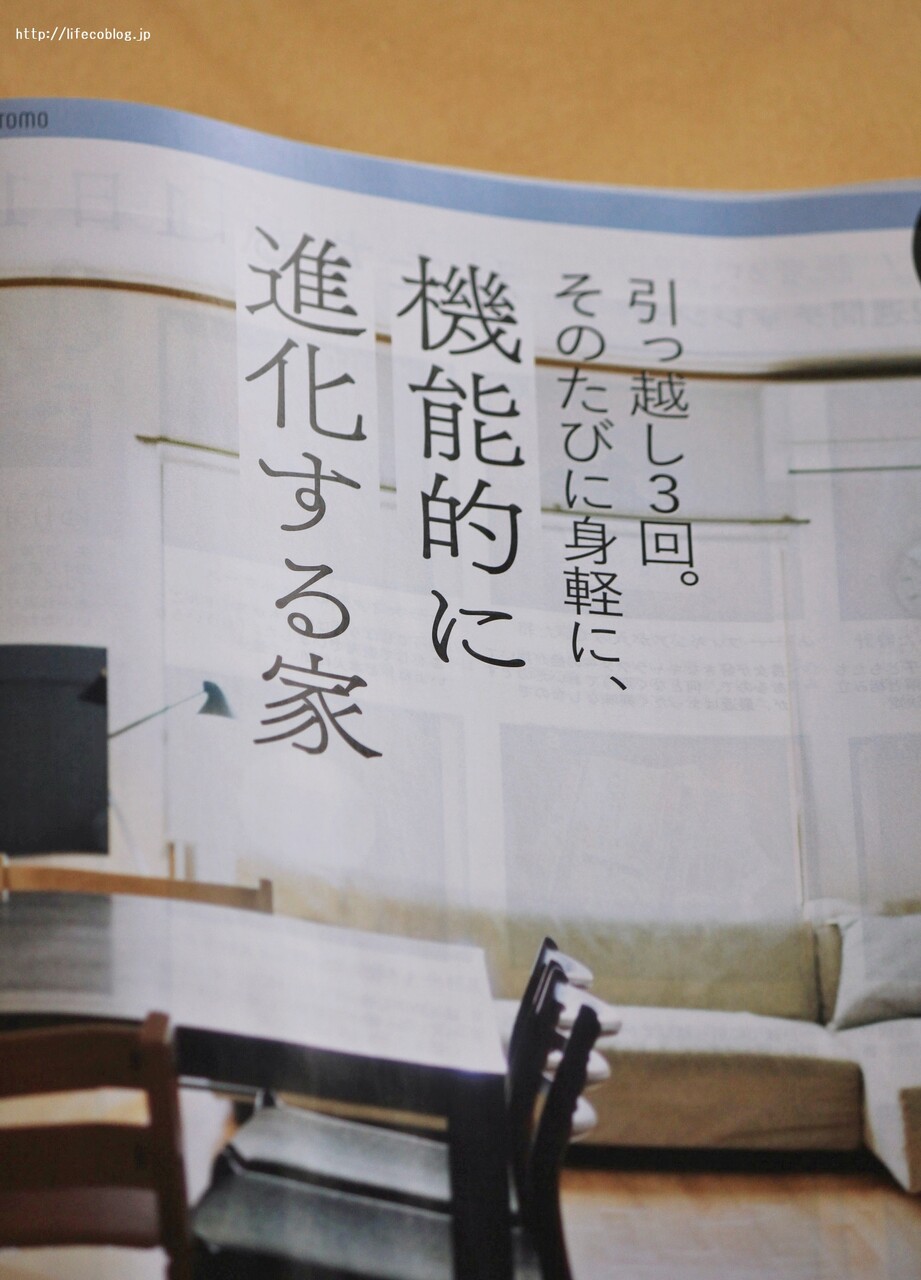 http://lifecoblog.jp
引っ越し3回。
そのたびに身軽に、
機能的に
進化する家